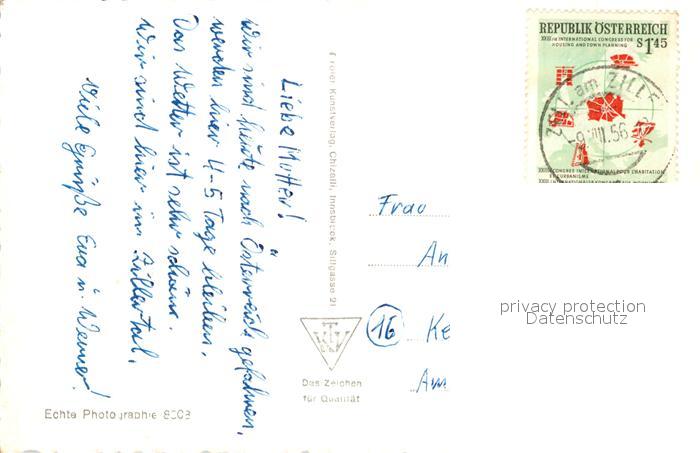 Liebe Mutter!
Wir sind heute nach Österreich gefahren,
werden hier 4-5 Tage bleiben.
Das Wetter ist sehr schön.
Wir sind hier im Zillertal.
Viele Grüße Eva u. Werner!
Echte Photographie 8003
Kunstverlag, Chizzali, Innsbruck, Sillgasse 21
Das Zeichen
für Qualität
REPUBLIK ÖSTERREICH
XXIII rd INTERNATIONAL CONGRESS FOR
HOUSING AND TOWN PLANNING
S 1·45
ZELL am ZILLE
-9.VIII.56
XXIII CONGRES INTERNATIONAL POUR L'HABITATION
ET URBANISME
Frau
An
16 Ke
Am
privacy protection
Datenschutz